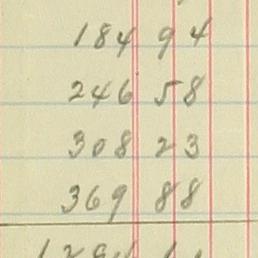 184 94
246 58
308 23
369 88